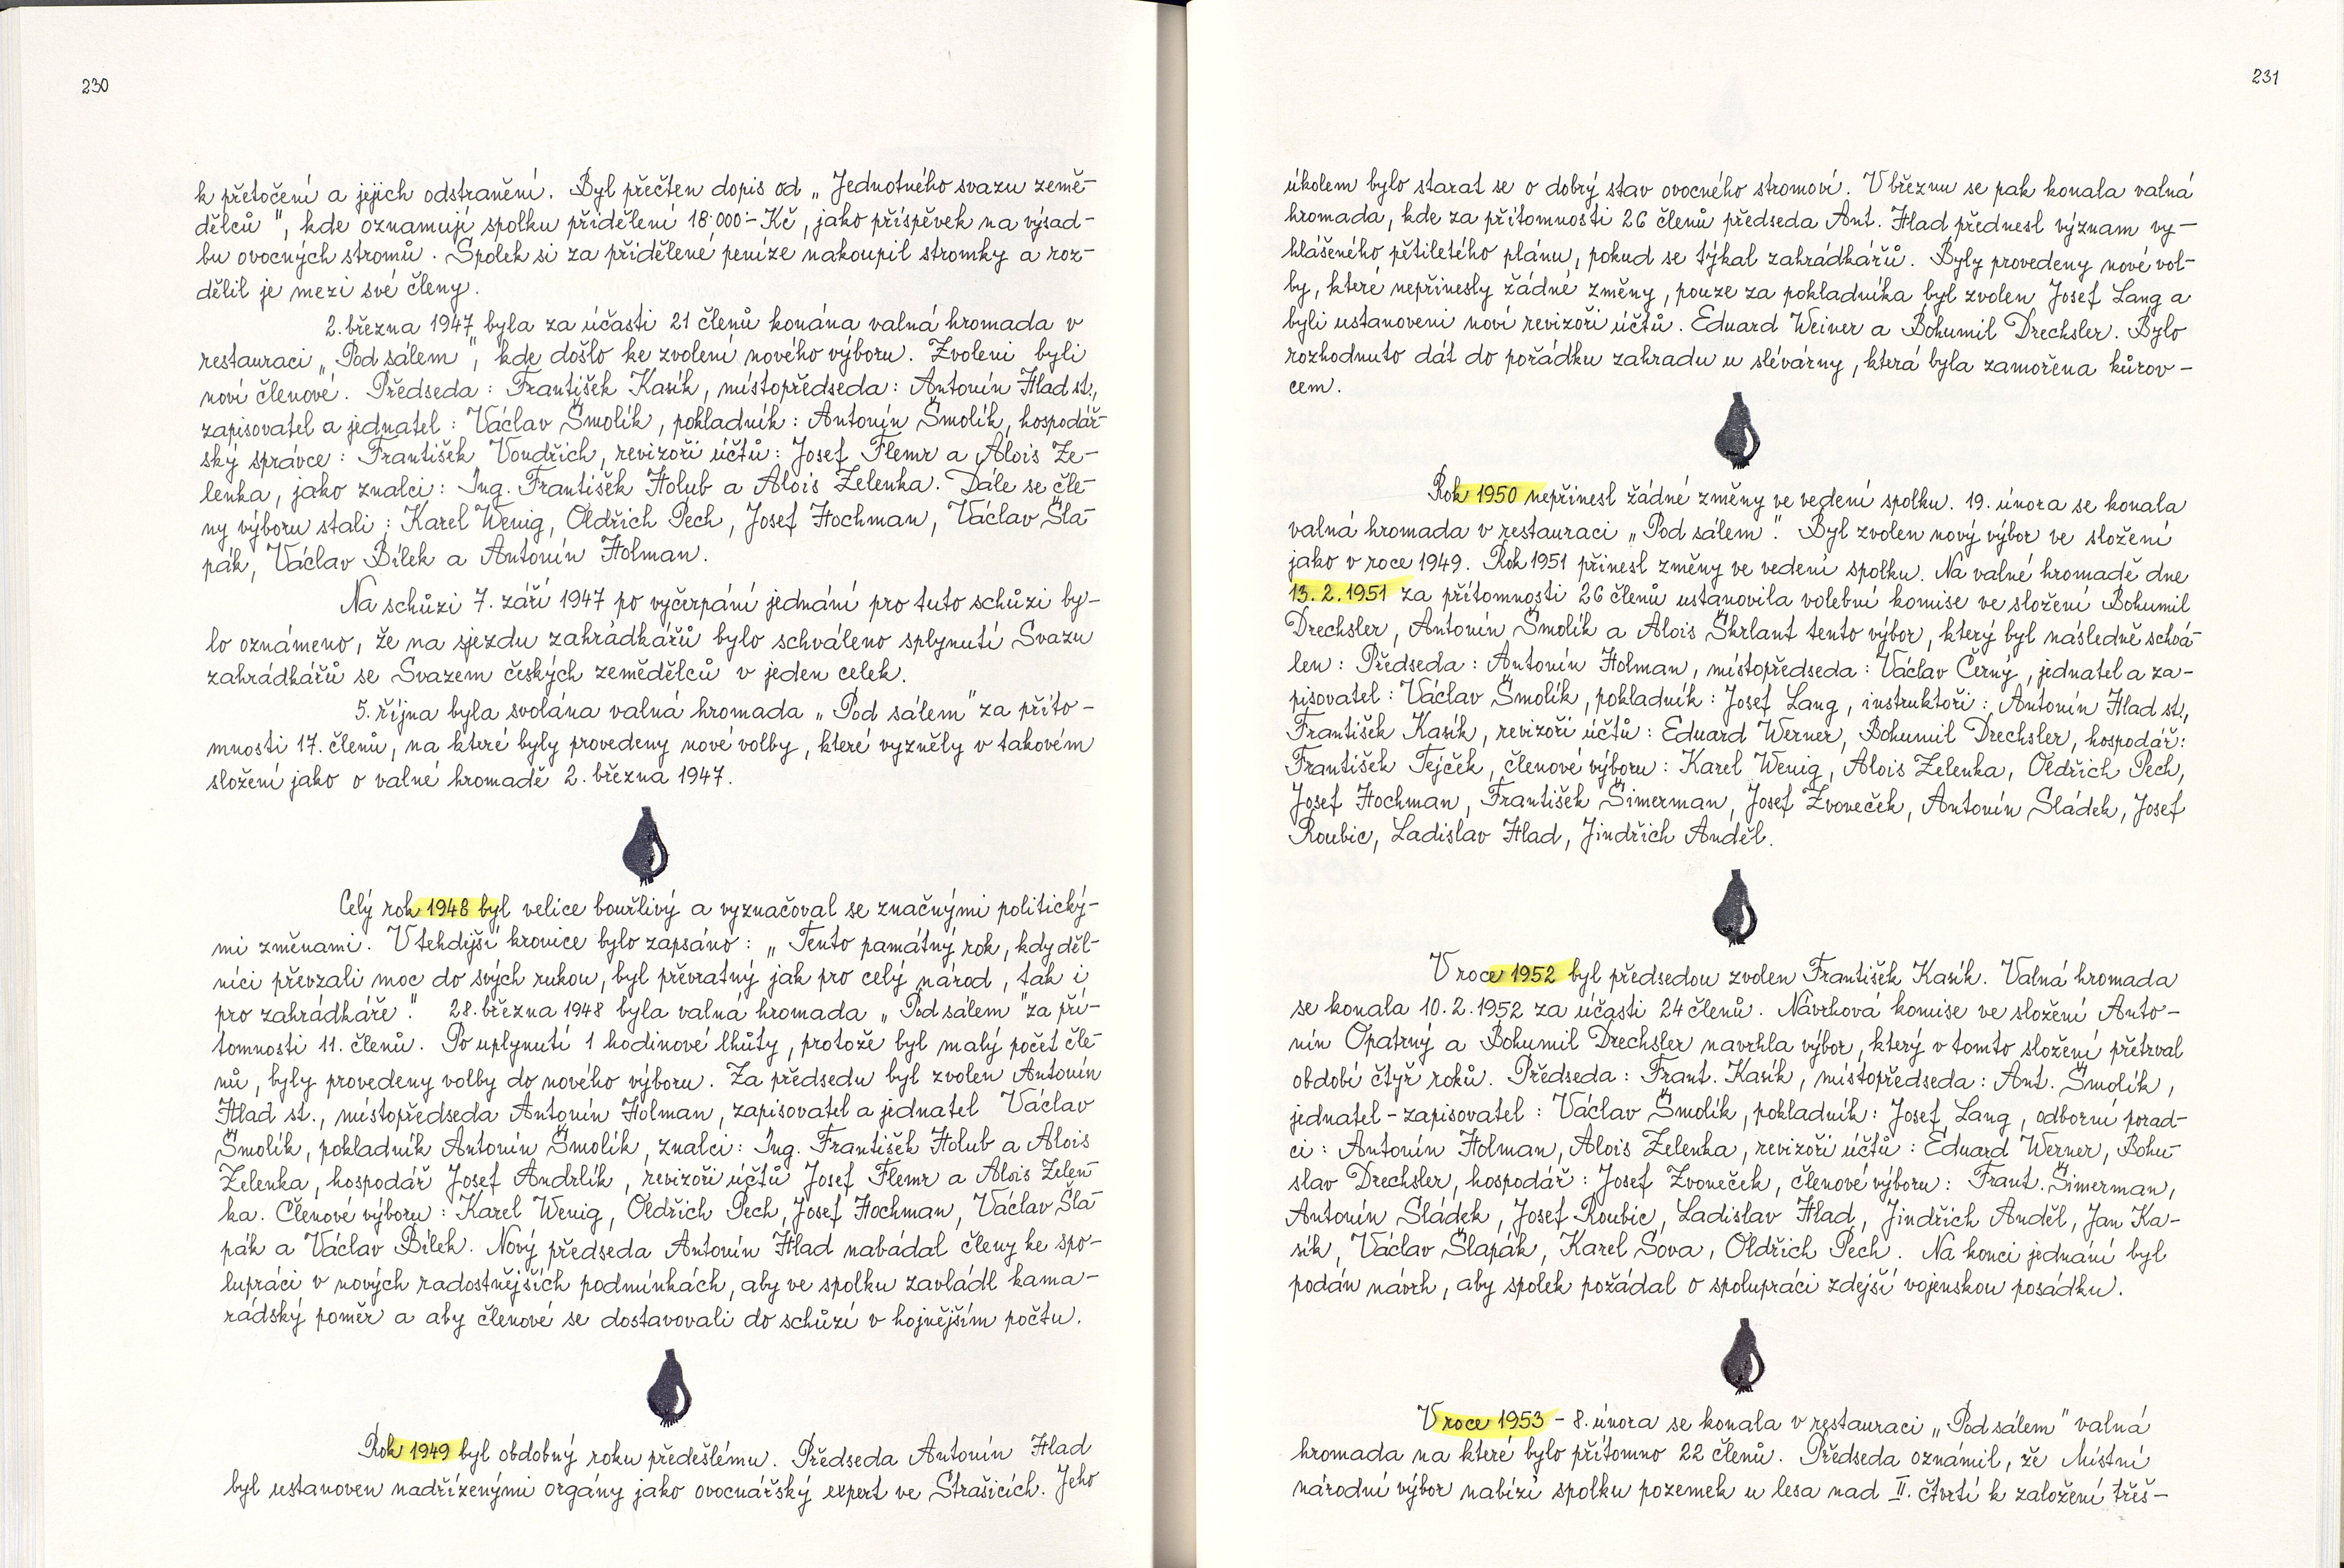 230
k přetočení a jejich odstranění. Byl přečten dopis od „Jednotného svazu země-
dělců", kde oznamují spolku přidělení 18.000.- Kč, jako příspěvek na výsad-
bu ovocných stromů. Spolek si za přidělené peníze nakoupil stromky a roz-
dělil je mezi své členy.
2. března 1947 byla za účasti 21 členů konána valná hromada v
restauraci „Pod sálem", kde došlo ke zvolení nového výboru. Zvoleni byli
noví členové. Předseda: František Kasík, místopředseda: Antonín Hlad st.,
zapisovatel a jednatel: Václav Šmolík, pokladník: Antonín Šmolík, hospodář-
ský správce: František Vondřich, revizoři účtů: Josef Flemr a Alois Ze-
lenka, jako znalci: Ing. František Holub a Alois Zelenka. Dále se čle-
ny výboru stali: Karel Wenig, Oldřich Pech, Josef Hochman, Václav Šla-
pák, Václav Bílek a Antonín Holman.
Na schůzi 7. září 1947 po vyčerpání jednání pro tuto schůzi by-
lo oznámeno, že na sjezdu zahrádkářů bylo schváleno splynutí Svazu
zahrádkářů se Svazem českých zemědělců v jeden celek.
5. října byla svolána valná hromada „Pod sálem" za příto-
mnosti 17. členů, na které byly provedeny nové volby, které vyzněly v takovém
složení jako o valné hromadě 2. března 1947.
Celý rok 1948 byl velice bouřlivý a vyznačoval se značnými politický-
mi změnami. V tehdejší kronice bylo zapsáno: „Tento památný rok, kdy děl-
níci převzali moc do svých rukou, byl převratný jak pro celý národ, tak i
pro zahrádkáře". 28. března 1948 byla valná hromada „Pod sálem" za pří-
tomnosti 11. členů. Po uplynutí 1 hodinové lhůty, protože byl malý počet čle-
nů, byly provedeny volby do nového výboru. Za předsedu byl zvolen Antonín
Hlad st., místopředseda Antonín Holman, zapisovatel a jednatel Václav
Šmolík, pokladník Antonín Šmolík, znalci: Ing. František Holub a Alois
Zelenka, hospodář Josef Andrlík, revizoři účtů Josef Flemr a Alois Zelen-
ka. Členové výboru: Karel Wenig, Oldřich Pech, Josef Hochman, Václav Šla-
pák a Václav Bílek. Nový předseda Antonín Hlad nabádal členy ke spo-
lupráci v nových radostnějších podmínkách, aby ve spolku zavládl kama-
rádský poměr a aby členové se dostavovali do schůzí v hojnějším počtu.
Rok 1949 byl obdobný roku předešlému. Předseda Antonín Hlad
byl ustanoven nadřízenými orgány jako ovocnářský expert ve Strašicích. Jeho
231
úkolem bylo starat se o dobrý stav ovocného stromoví. V březnu se pak konala valná
hromada, kde za přítomnosti 26 členů předseda Ant. Hlad přednesl význam vy-
hlášeného pětiletého plánu, pokud se týkal zahrádkářů. Byly provedeny nové vol-
by, které nepřinesly žádné změny, pouze za pokladníka byl zvolen Josef Lang a
byli ustanoveni noví revizoři účtů. Eduard Weiner a Bohumil Drechsler. Bylo
rozhodnuto dát do pořádku zahradu u slévárny, která byla zamořena kůrov-
cem.
Rok 1950 nepřinesl žádné změny ve vedení spolku. 19. února se konala
valná hromada v restauraci „Pod sálem". Byl zvolen nový výbor ve složení
jako v roce 1949. Rok 1951 přinesl změny ve vedení spolku. Na valné hromadě dne
13. 2. 1951 za přítomnosti 26 členů ustanovila volební komise ve složení Bohumil
Drechsler, Antonín Šmolík a Alois Škrlant tento výbor, který byl následně schvá-
len: Předseda: Antonín Holman, místopředseda: Václav Černý, jednatel a za-
pisovatel: Václav Šmolík, pokladník: Josef Lang, instruktoři: Antonín Hlad st.,
František Kasík, revizoři účtů: Eduard Werner, Bohumil Drechsler, hospodář:
František Tejček, členové výboru: Karel Wenig, Alois Zelenka, Oldřich Pech,
Josef Hochman, František Šimerman, Josef Zvoneček, Antonín Sládek, Josef
Roubic, Ladislav Hlad, Jindřich Anděl.
V roce 1952 byl předsedou zvolen František Kasík. Valná hromada
se konala 10. 2. 1952 za účasti 24 členů. Návrhová komise ve složení Anto-
nín Opatrný a Bohumil Drechsler navrhla výbor, který v tomto složení přetrval
období čtyř roků. Předseda: Frant. Kasík, místopředseda: Ant. Šmolík,
jednatel - zapisovatel: Václav Šmolík, pokladník: Josef Lang, odborní porad-
ci: Antonín Holman, Alois Zelenka, revizoři účtů: Eduard Werner, Bohu-
slav Drechsler, hospodář: Josef Zvoneček, členové výboru: Frant. Šimerman,
Antonín Sládek, Josef Roubic, Ladislav Hlad, Jindřich Anděl, Jan Ka-
sík, Václav Šlapák, Karel Sova, Oldřich Pech. Na konci jednání byl
podán návrh, aby spolek požádal o spolupráci zdejší vojenskou posádku.
V roce 1953 - 8. února se konala v restauraci „Pod sálem" valná
hromada na které bylo přítomno 22 členů. Předseda oznámil, že Místní
národní výbor nabízí spolku pozemek u lesa nad II. čtvrtí k založení třeš-